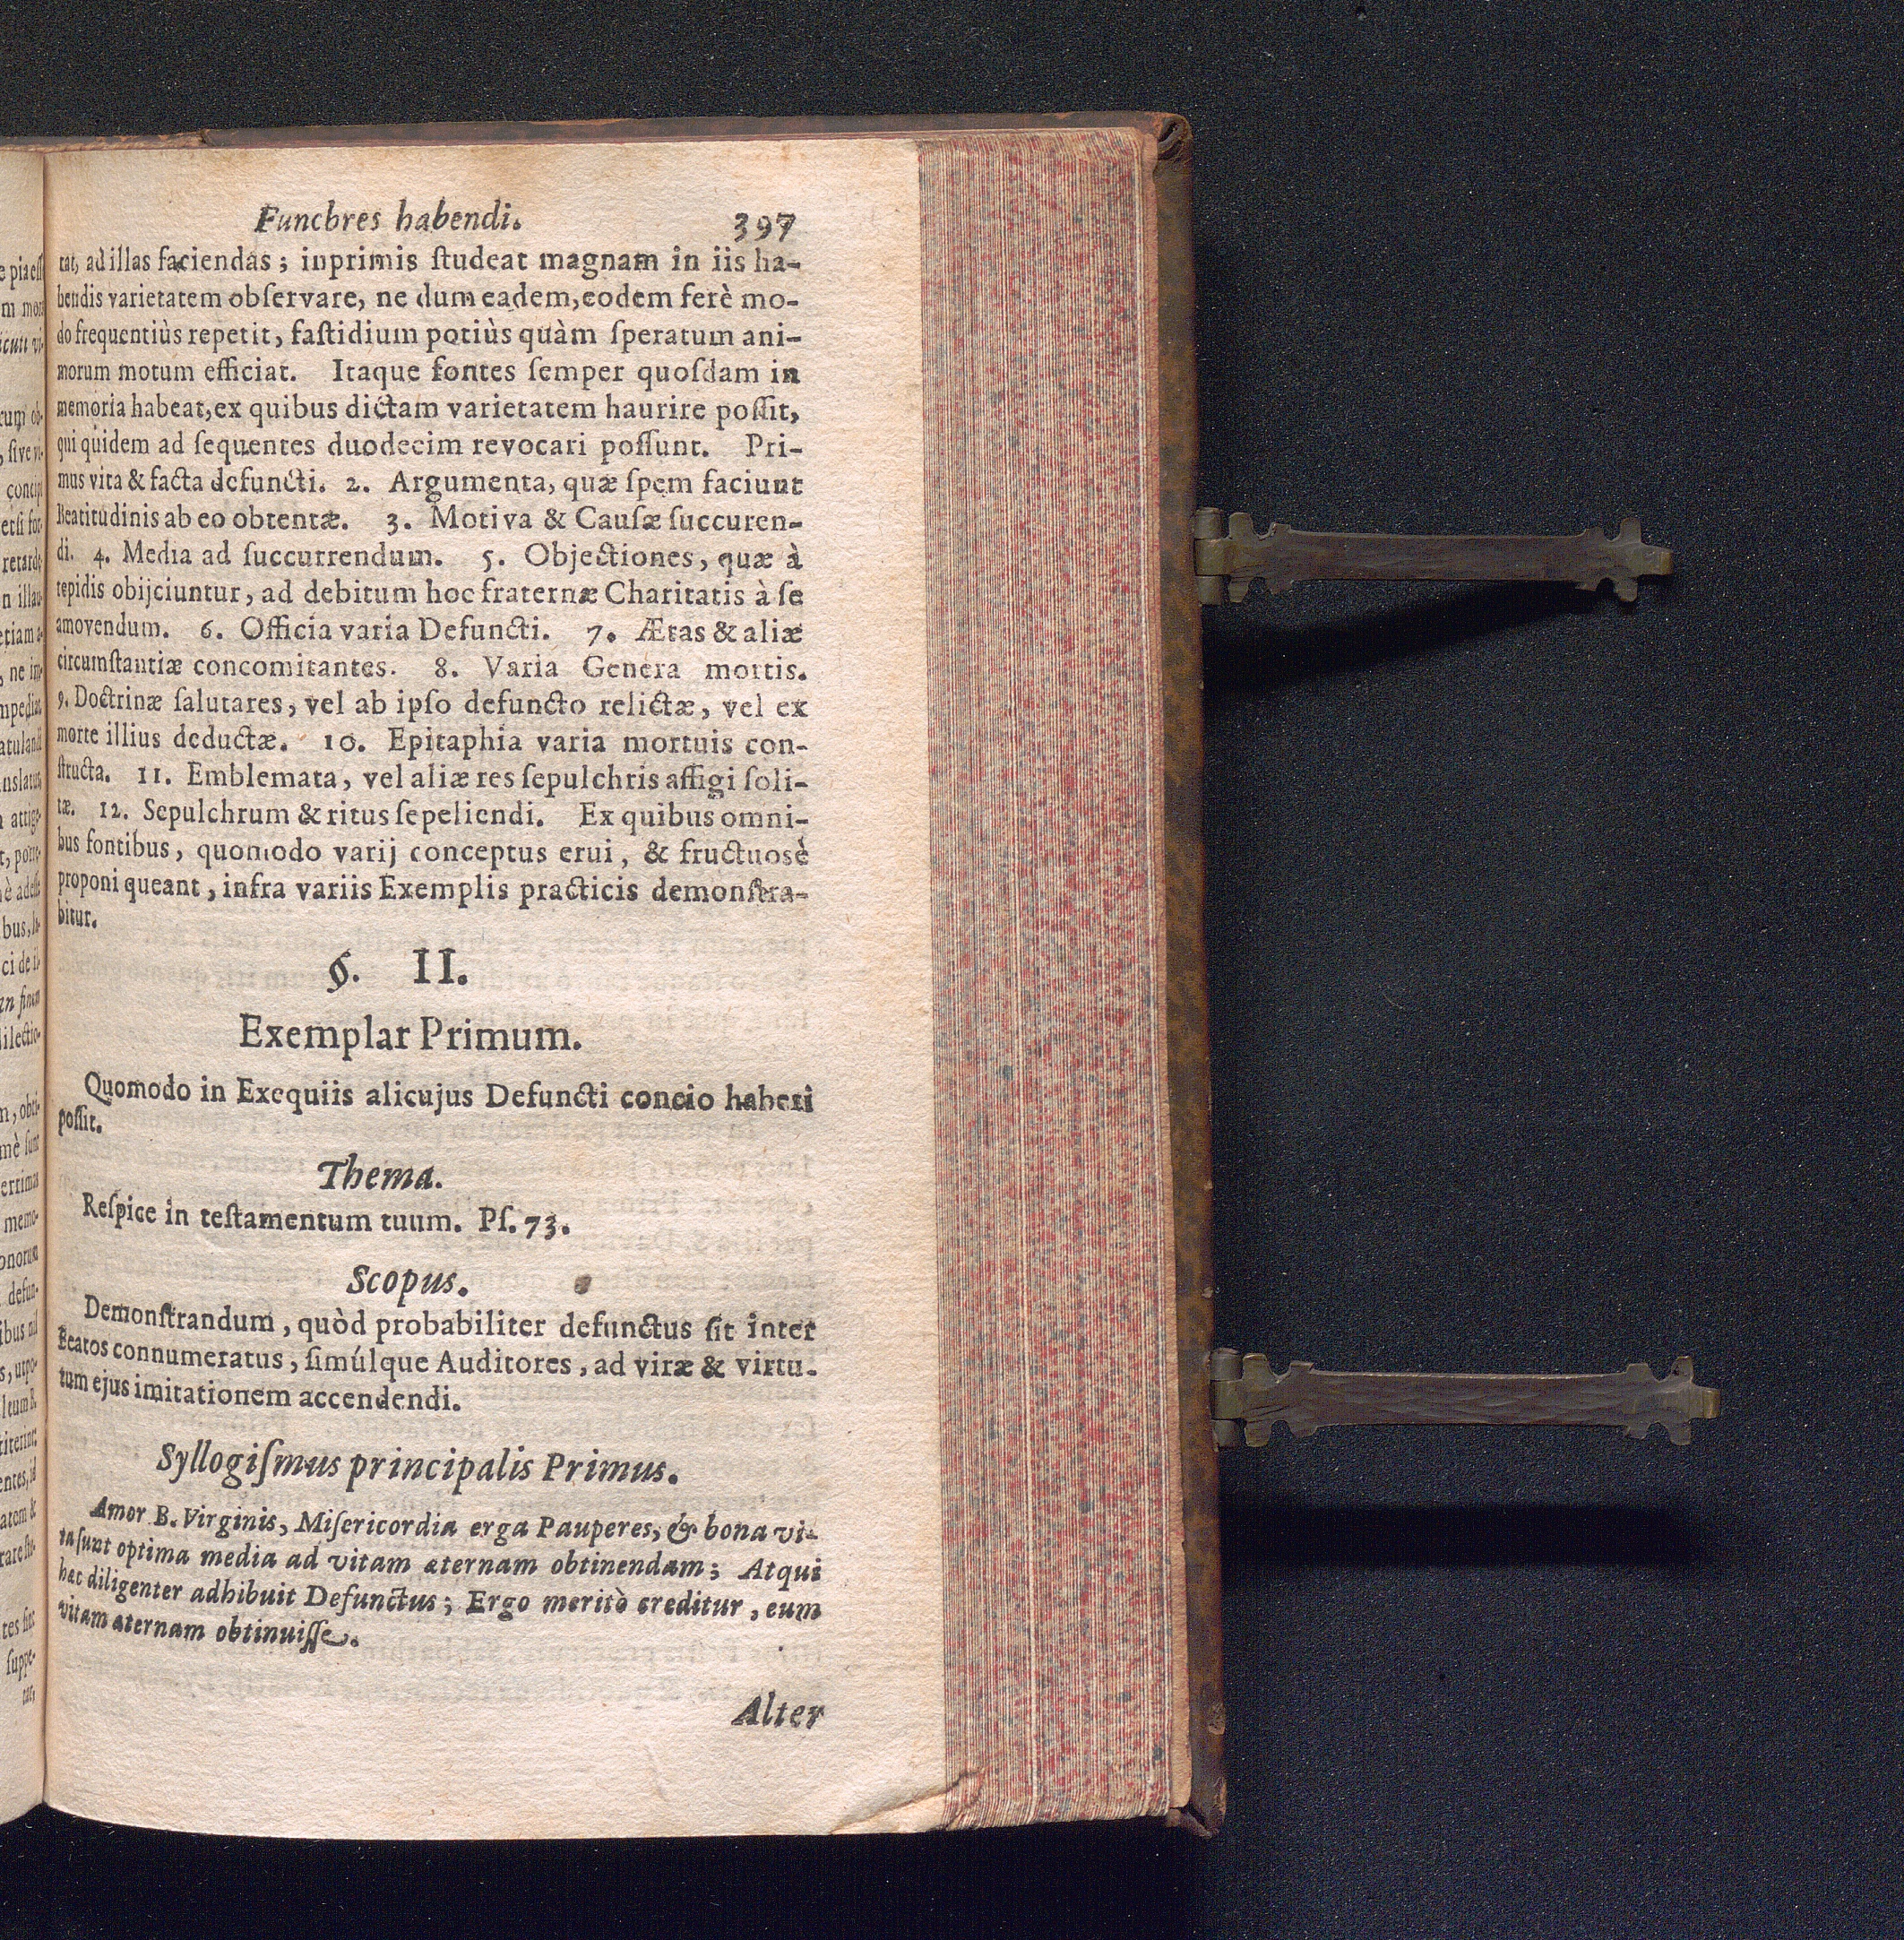 Funebres habendi. 397
tat, ad illas faciendas; inprimis ſtudeat magnam in iis ha-
bendis varietatem obſervare, ne dum eadem, eodem ferè mo-
do frequentiùs repetit, faſtidium potiùs quàm ſperatum ani-
morum motum efficiat. Itaque fontes ſemper quoſdam in
memoria habeat, ex quibus dictam varietatem haurire poſſit,
qui quidem ad ſequentes duodecim revocari poſſunt. Pri-
mus vita & facta defuncti. 2. Argumenta, quæ ſpem faciunt
Beatitudinis ab eo obtentæ. 3. Motiva & Cauſæ ſuccuren-
di. 4. Media ad ſuccurrendum. 5. Objectiones, quæ à
tepidis obijciuntur, ad debitum hoc fraternæ Charitatis à ſe
amovendum. 6. Officia varia Defuncti. 7. Ætas & aliæ
circumſtantiæ concomitantes. 8. Varia Genera mortis.
9. Doctrinæ ſalutares, vel ab ipſo defuncto relictæ, vel ex
morte illius deductæ. 10. Epitaphia varia mortuis con-
ſtructa. 11. Emblemata, vel aliæ res ſepulchris affigi ſoli-
tæ. 12. Sepulchrum & ritus ſepeliendi. Ex quibus omni-
bus fontibus, quomodo varij conceptus erui, & fructuosè
proponi queant, infra variis Exemplis practicis demonſtra-
bitur.
§. II.
Exemplar Primum.
Quomodo in Exequiis alicujus Defuncti concio haberi
poſſit.
Thema.
Reſpice in teſtamentum tuum. Pſ. 73.
Scopus.
Demonſtrandum, quòd probabiliter defunctus ſit inter
Beatos connumeratus, ſimúlque Auditores, ad vitæ & virtu-
tum ejus imitationem accendendi.
Syllogiſmus principalis Primus.
Amor B. Virginis, Miſericordia erga Pauperes, & bona vi-
ta ſunt optima media ad vitam æternam obtinendam; Atqui
hæc diligenter adhibuit Defunctus; Ergo meritò creditur, eum
vitam æternam obtinuiſſe.
Alter